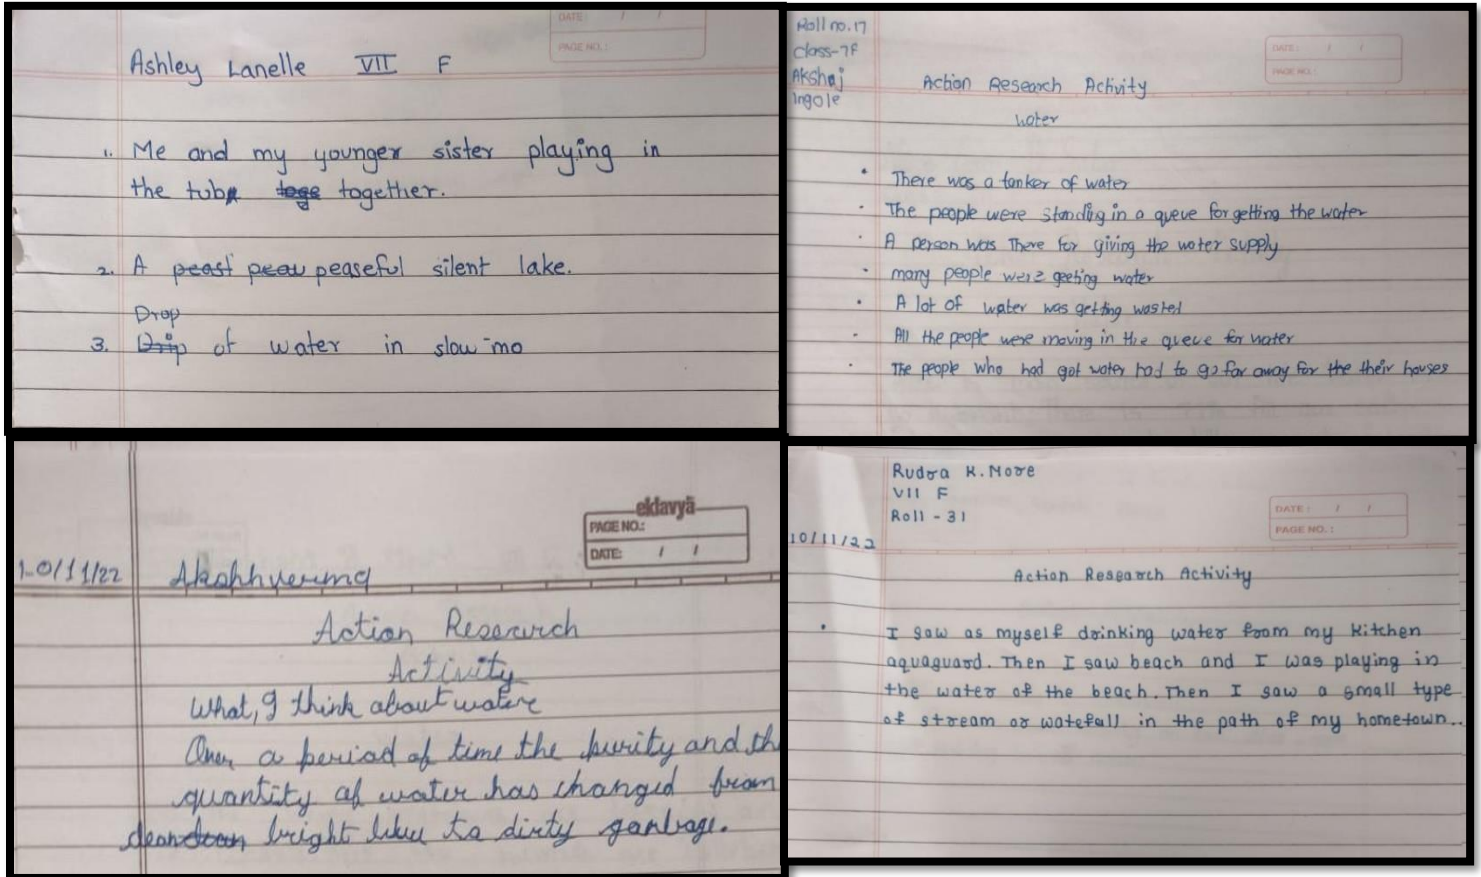 DATE: / /
PAGE NO.:
Ashley Lanelle VII F
1. Me and my younger sister playing in
the tub together.
2. A peaseful silent lake.
Drop
3. Drip of water in slow-mo
Roll no. 17
Class-7F
Akshaj
Ingole
DATE: / /
PAGE NO.:
Action Research Activity
Water
• There was a tanker of water
• The people were standing in a queue for getting the water
• A person was There for giving the water supply
• many people were geeting water
• A lot of water was getting wasted
• All the people were moving in the queue for water
• The people who had got water had to go far away for the their houses
eklavyā
PAGE NO.:
DATE: / /
10/11/22
Action Research
Activity
What, I think about water
Over a period of time the purity and th
quantity of water has changed from
clean bright blue to dirty garbage.
Rudra K. More
VII F
Roll - 31
DATE: / /
PAGE NO.:
10/11/22
Action Research Activity
• I saw as myself drinking water from my kitchen
aquaguard. Then I saw beach and I was playing in
the water of the beach. Then I saw a small type
of stream or watefall in the path of my hometown..